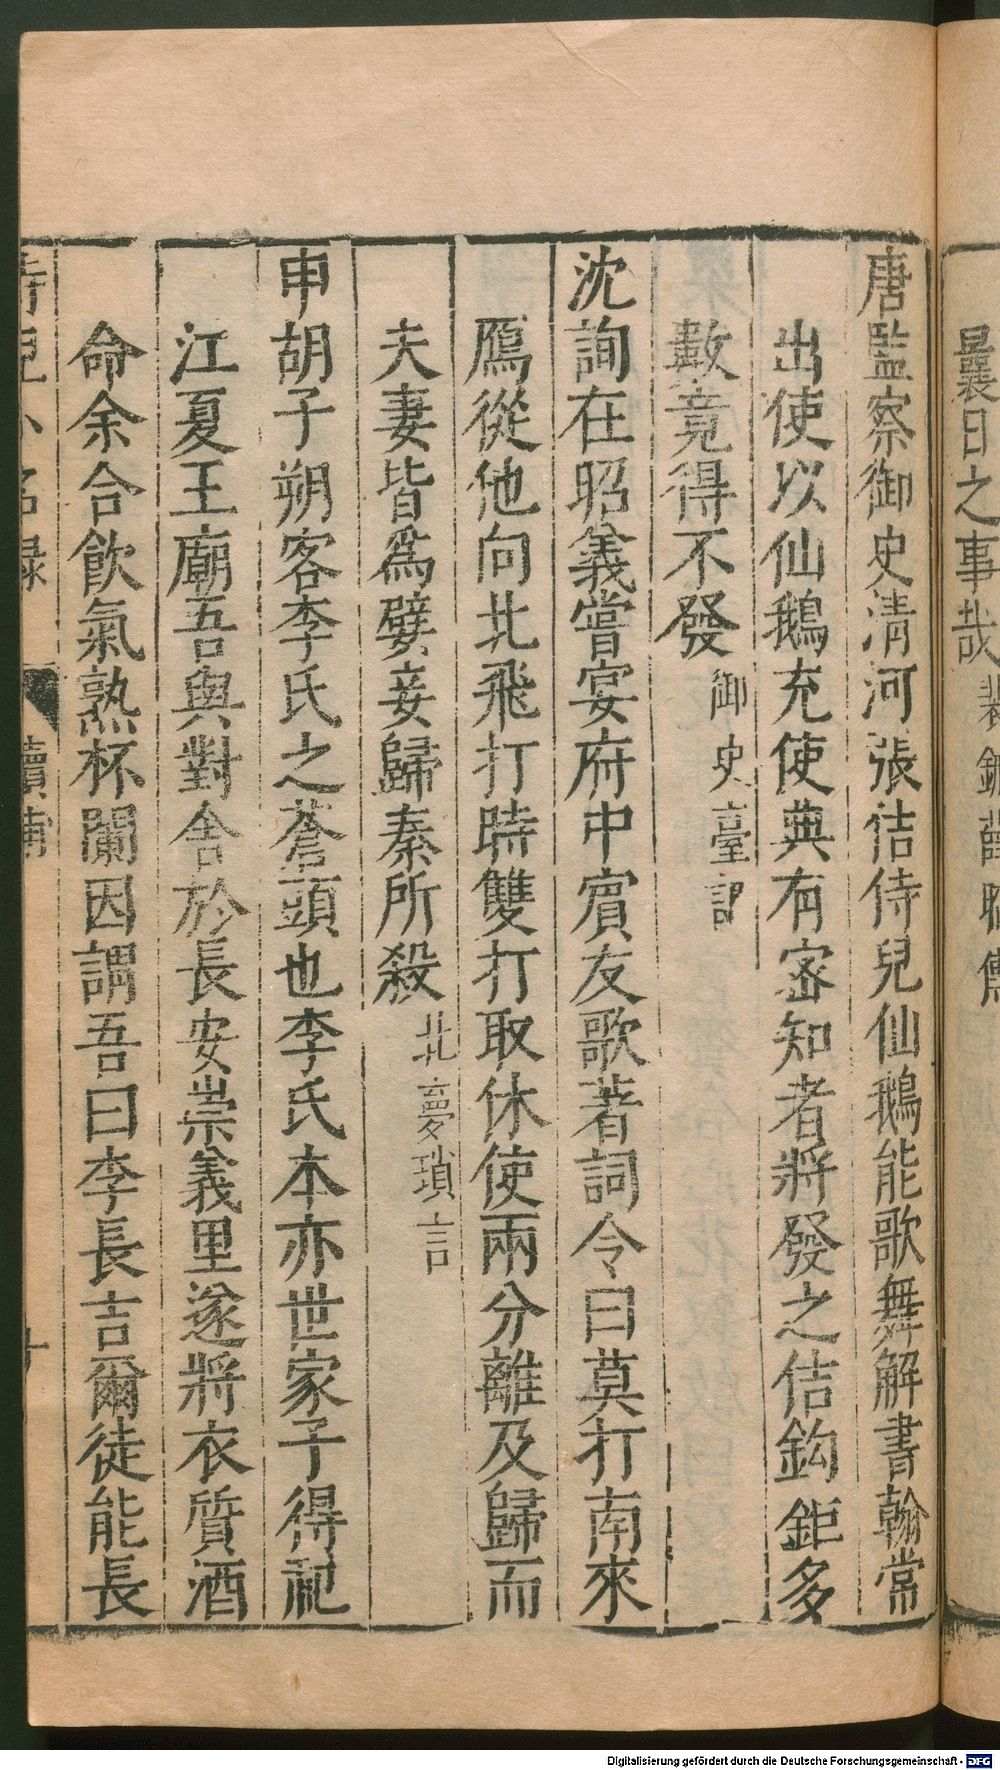 曩日之事哉
唐監察御史清河張佶侍兒仙鵝能歌舞解書翰常
出使以仙鵝充使典有密知者將發之佶鈎鉅多
數竟得不發御史臺記
沈詢在昭義嘗宴府中賓友歌著詞令曰莫打南來
鴈從他向北飛打時雙打取休使兩分離及歸而
夫妻皆爲嬖妾歸秦所殺北夢瑣言
申胡子朔客李氏之蒼頭也李氏本亦世家子得祀
江夏王廟吾與對舍於長安崇義里遂將衣質酒
命余合飲氣熟杯闌因謂吾曰李長吉爾徒能長
侍兒小名錄 續補 十
Digitalisierung gefördert durch die Deutsche Forschungsgemeinschaft - DFG